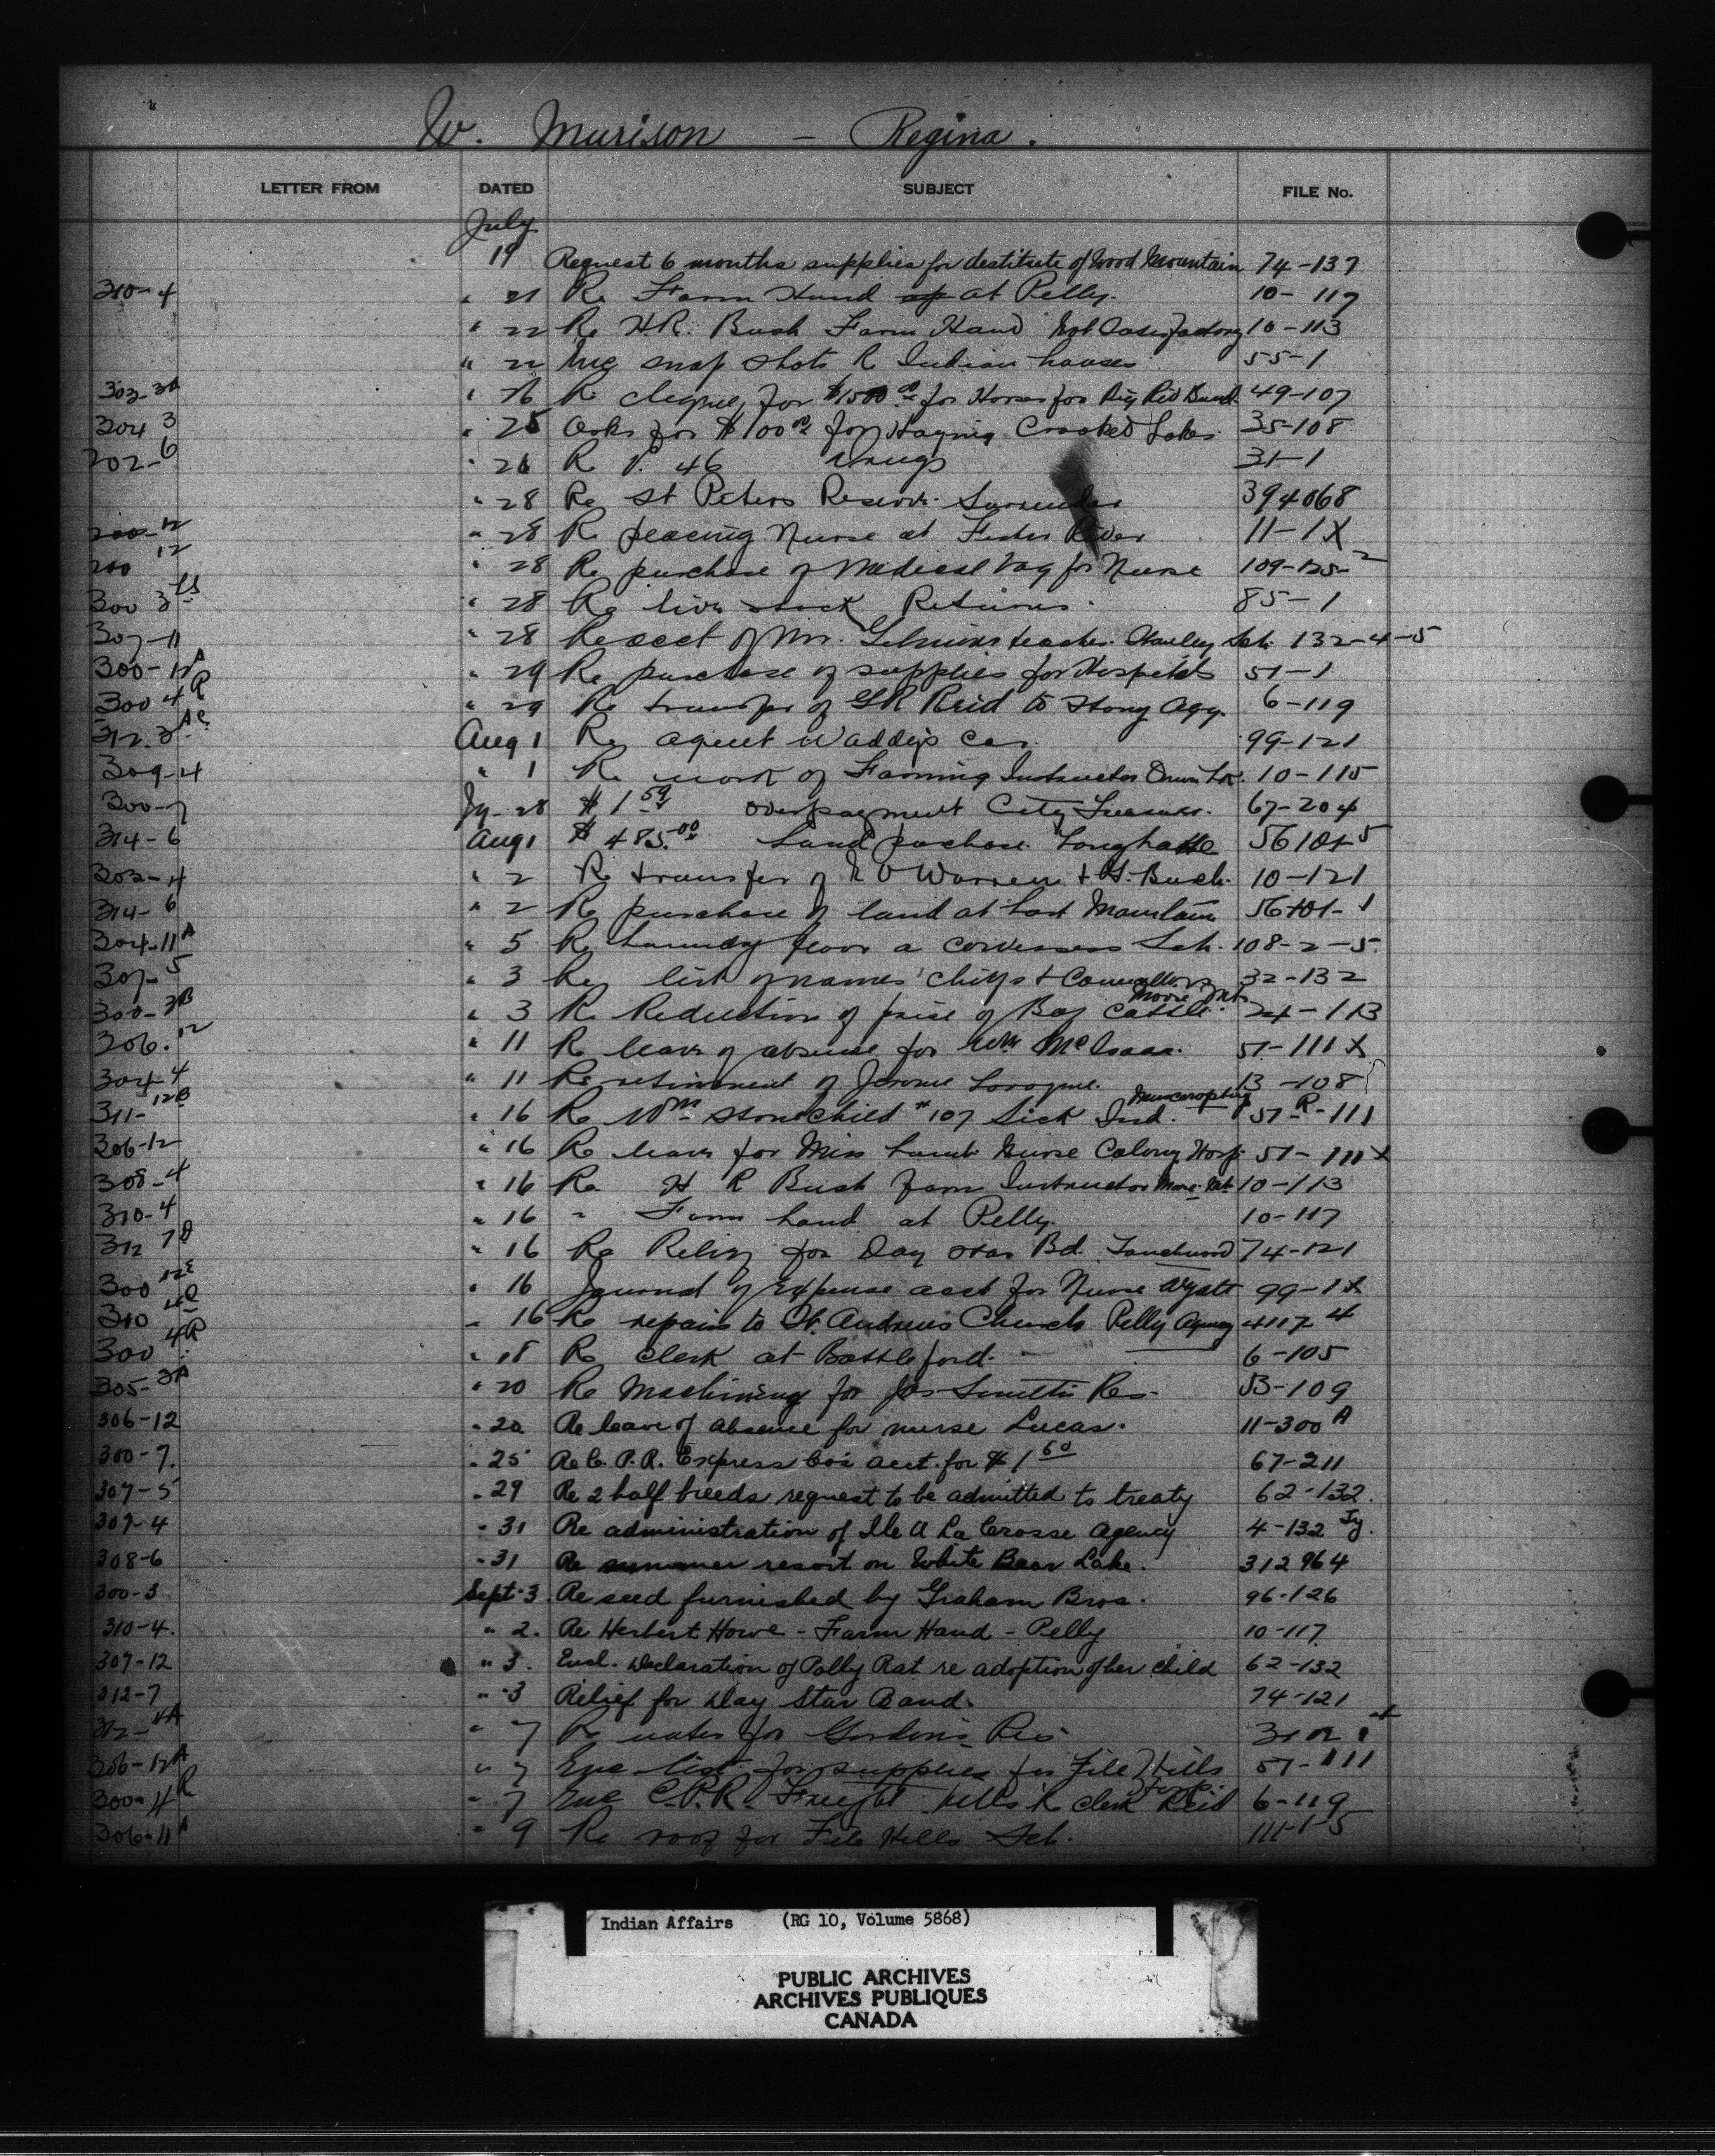 W. Murison - Regina.
LETTER FROM DATED SUBJECT FILE No.
July
19 Request 6 months supplies for destitute of Wood Mountain 74-137
310-4 " 21 Re Farm Hand at Pelly. 10-117
" 22 Re H.R. Bush Farm Hand Not Satisfactory 10-113
" 22 Enc snap shots R Indian houses 55-1
303-3A " Re cheque for $1500.00 for Horses for Band 49-107
304 3 " 25 Asks for $100.00 for Haying Crooked Lakes 35-108
202-6 " 26 R V. 46 Drugs 31-1
" 28 Re St Peters Reserve Surrender 394068
200-12 " 28 Re placing Nurse at Fisher River 11-1X
200 12 " 28 Re purchase of Medical bag for Nurse 109-125-2
300 3 LS " 28 Re live stock Returns. 85-1
307-11 " 28 Re acct of Mr. teacher Sch. 132-4-5
300-12A " 29 Re purchase of supplies for Hospitals 51-1
300 4R " 29 Re transfer of GR Reid to Stony Agy. 6-119
312.3AC Aug 1 Re agent Waddy's Car. 99-121
309-4 " 1 Re work of Farming Instructor 10-115
300-7 Jy-28 $1 59 overpayment City Treasurer. 67-204
314-6 Aug 1 $485.00 Land purchase 56101-5
303-4 " 2 Re transfer of Warren + H. Bush. 10-121
314-6 " 2 Re purchase of land at Last Mountain 56101-1
304-11A " 5 Re laundry floor a Cowessess Sch. 108-2-5
307-5 " 3 Re list of names Chiefs + Councillors 32-132
300-3B " 3 Re Reduction of price of Cattle. Moose Mt. 24-113
206.12 " 11 Re leave of absence for Wm McIsaac. 51-111X
304-4 " 11 Re retirement of Jerome 13-108
311-12B " 16 Re Wm Stonechild #107 Sick Ind. 51-R-111
206-12 " 16 Re leave for Miss Lamb Nurse Colony Hosp. 51-111X
308-4 " 16 Re H R Bush farm Instructor Moose Mt 10-113
310-4 " 16 " Farm hand at Pelly. 10-117
312 7A " 16 Re Relief for Day Star Bd. Touchwood 74-121
300 12E " 16 Journal of Expense acct for Nurse Wyatt 99-1X
310 4C " 16 Re repairs to St. Andrews Church Pelly Agency 4117-4
300 4R " 18 Re clerk at Battleford. 6-105
305-3A " 20 Re Machinery for Jas Smith's Res. 53-109
306-12 " 20 Re leave of absence for nurse Lucas. 11-300 A
300-7. " 25 Re C.P.R. Express Co's acct. for $1 60 67-211
307-5 " 29 Re 2 half breeds request to be admitted to treaty 62-132.
307-4 " 31 Re administration of Ile A La Crosse Agency 4-132 Jy.
308-6 " 31 Re summer resort on White Bear Lake. 312964
300-3 Sept-3. Re seed furnished by Graham Bros. 96-126
310-4. " 2. Re Herbert Howe - Farm Hand - Pelly 10-117
307-12 " 3. Encl. Declaration of Polly Rat re adoption of her child 62-132
312-7 " 3 Relief for Day Star Band. 74-121
" 7 Re water for Gordon's Res
306-12A " 7 Enc list for supplies for File Hills Hosp. 51-111
300-4R " 7 Enc C.P.R. Freight bills R clerk Reid 6-119
306-11A " 9 Re roof for File Hills Sch. 111-1-5
Indian Affairs (RG 10, Volume 5868)
PUBLIC ARCHIVES
ARCHIVES PUBLIQUES
CANADA